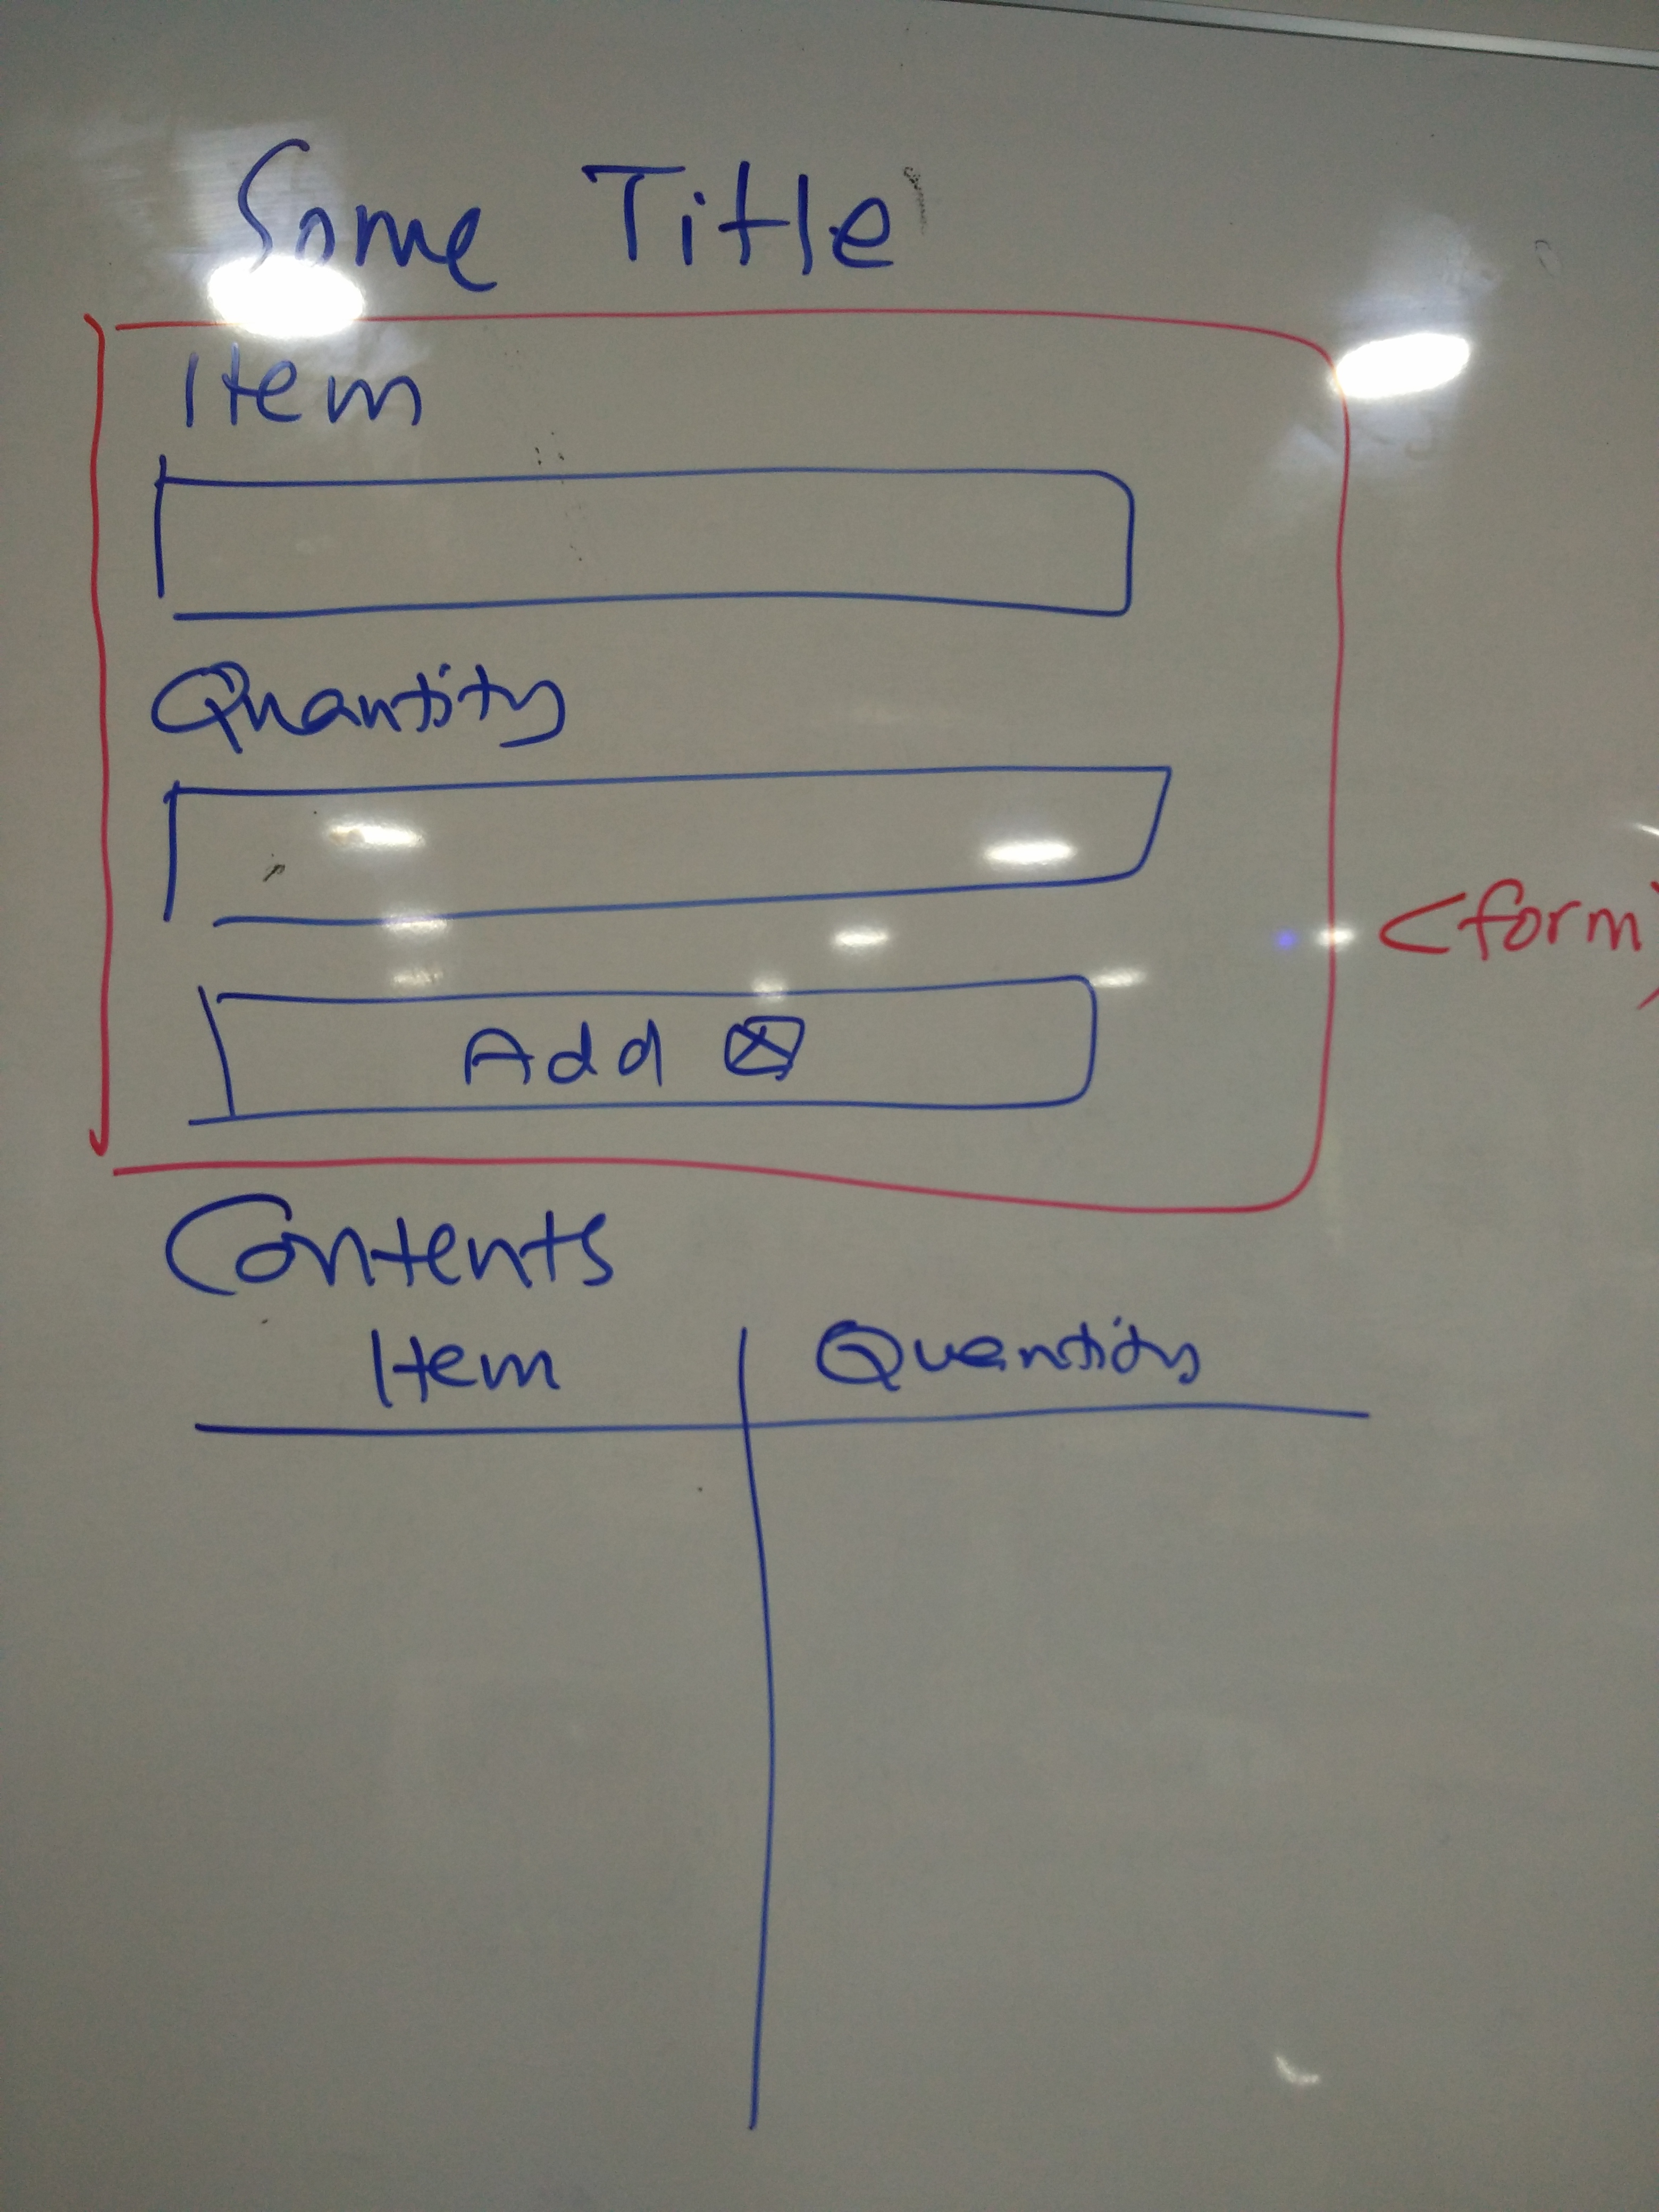 Some Title
Item
Quantity
<form>
Add
Contents
Item Quantity